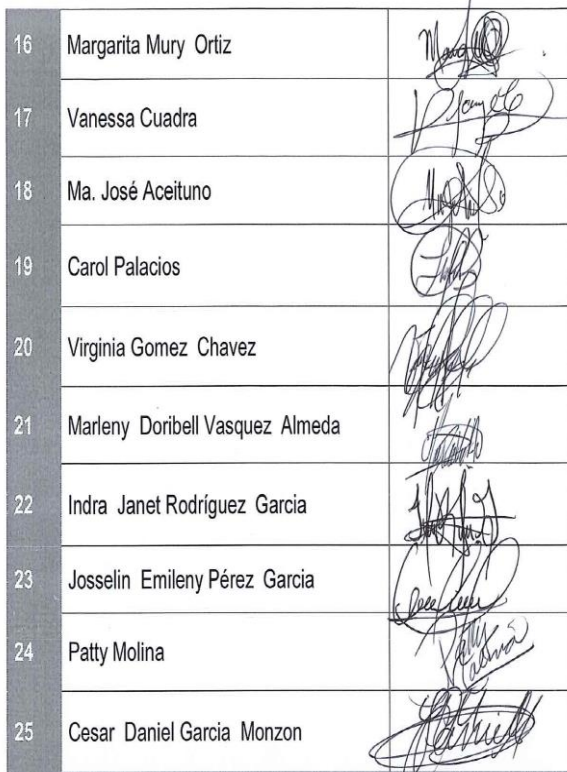 16 Margarita Mury Ortiz
17 Vanessa Cuadra
18 Ma. José Aceituno
19 Carol Palacios
20 Virginia Gomez Chavez
21 Marleny Doribell Vasquez Almeda
22 Indra Janet Rodríguez Garcia
23 Josselin Emileny Pérez Garcia
24 Patty Molina
25 Cesar Daniel Garcia Monzon